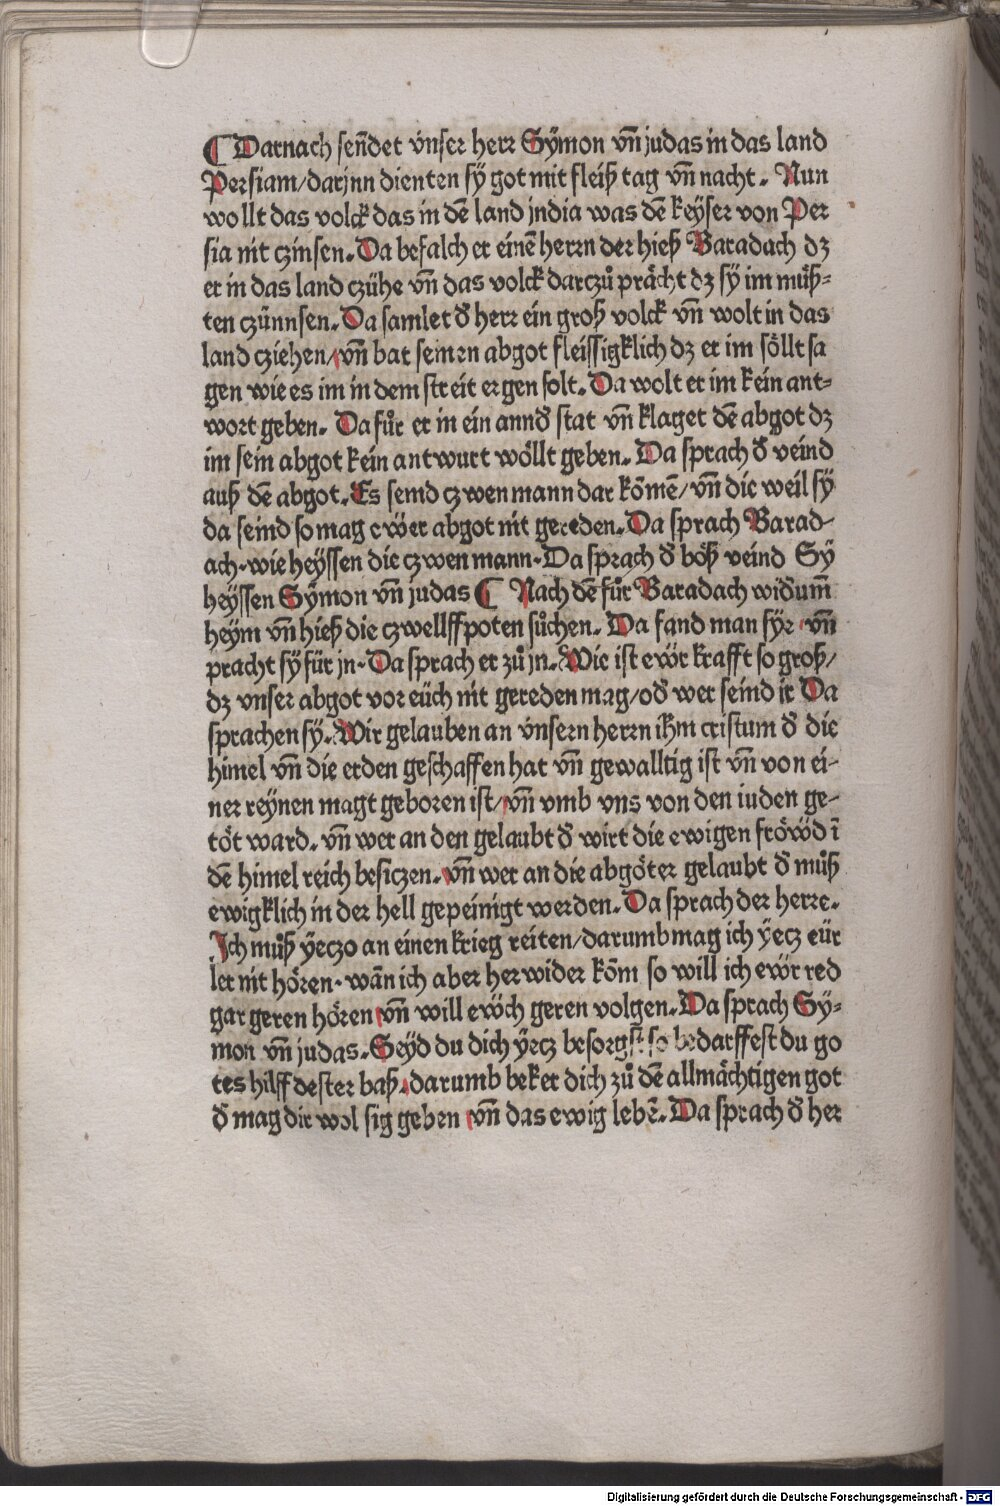 ⸿ Darnach sen̄det v́nser herr Sÿmon vn̄ judas in das land
Persiam/darjnn dienten sÿ got mit fleiß tag vn̄ nacht. Nun
wollt das volck das in dē land jndia was dē keÿser von Per
sia nit czinsen. Da befalch er einē herrn der hieß Baradach dꝫ
er in das land czühe vn̄ das volck darczů prächt dꝫ sÿ im můß⸗
ten czünnsen. Da samlet d̕ herr ein groß volck vn̄ wolt in das
land cziehen/vn̄ bat seinen abgot fleissigklich dꝫ er im söllt sa
gen wie es im in dem streit ergen solt. Da wolt er im kein ant⸗
wort geben. Da fůr er in ein annd̕ stat vn̄ klaget dē abgot dꝫ
im sein abgot kein antwurt wöllt geben. Da sprach d̕ veind
auß dē abgot. Es seind czwen mann dar kōmē/vn̄ die weil sÿ
da seind so mag ewer abgot nit gereden. Da sprach Barad⸗
ach. wie heÿssen die czwen mann. Da sprach d̕ böß veind Sÿ
heÿssen Sÿmon vn̄ judas ⸿ Nach dē fůr Baradach wid̕um̄
heÿm vn̄ hieß die czwelffpoten sůchen. Da fand man sÿe vn̄
pracht sÿ für jn. Da sprach er zů jn. Wie ist ewr̈ krafft so groß/
dꝫ vnser abgot vor eüch nit gereden mag/od̕ wer seind ir Da
sprachen sÿ. Wir gelauben an v́nsern herrn ihm cristum d̕ die
himel vn̄ die erden geschaffen hat vn̄ gewalltig ist vn̄ von ei⸗
ner reÿnen magt geboren ist/vn̄ vmb vns von den iuden ge⸗
töt ward. vn̄ wer an den gelaubt d̕ wirt die ewigen fröẅd ī
dē himel reich besiczen. vn̄ wer an die abgöter gelaubt d̕ můß
ewigklich in der hell gepeinigt werden. Da sprach der herre.
Ich můß ÿeczo an einen krieg reiten/darumb mag ich ÿecz eür
ler nit hören. wān ich aber her wider kōm so will ich ewr̈ red
gar geren hören vn̄ will eẅch geren volgen. Da sprach Sÿ⸗
mon vn̄ judas. Seÿd du dich ÿecz besorgst so bedarffest du go
tes hilff dester baß. darumb beker dich zů dē allmächtigen got
d̕ mag dir wol sig geben vn̄ das ewig lebē. Da sprach d̕ her
Digitalisierung gefördert durch die Deutsche Forschungsgemeinschaft - DFG